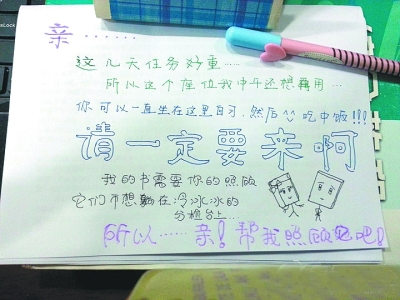 亲……
这几天任务好重……
所以这个座位我中午还想用…
你可以一直坐在这里自习,然后^^吃中饭!!!
请一定要来啊
我的书需要你的照顾
它们不想在冷冰冰的
台上…
所以……亲!帮我照顾它吧!